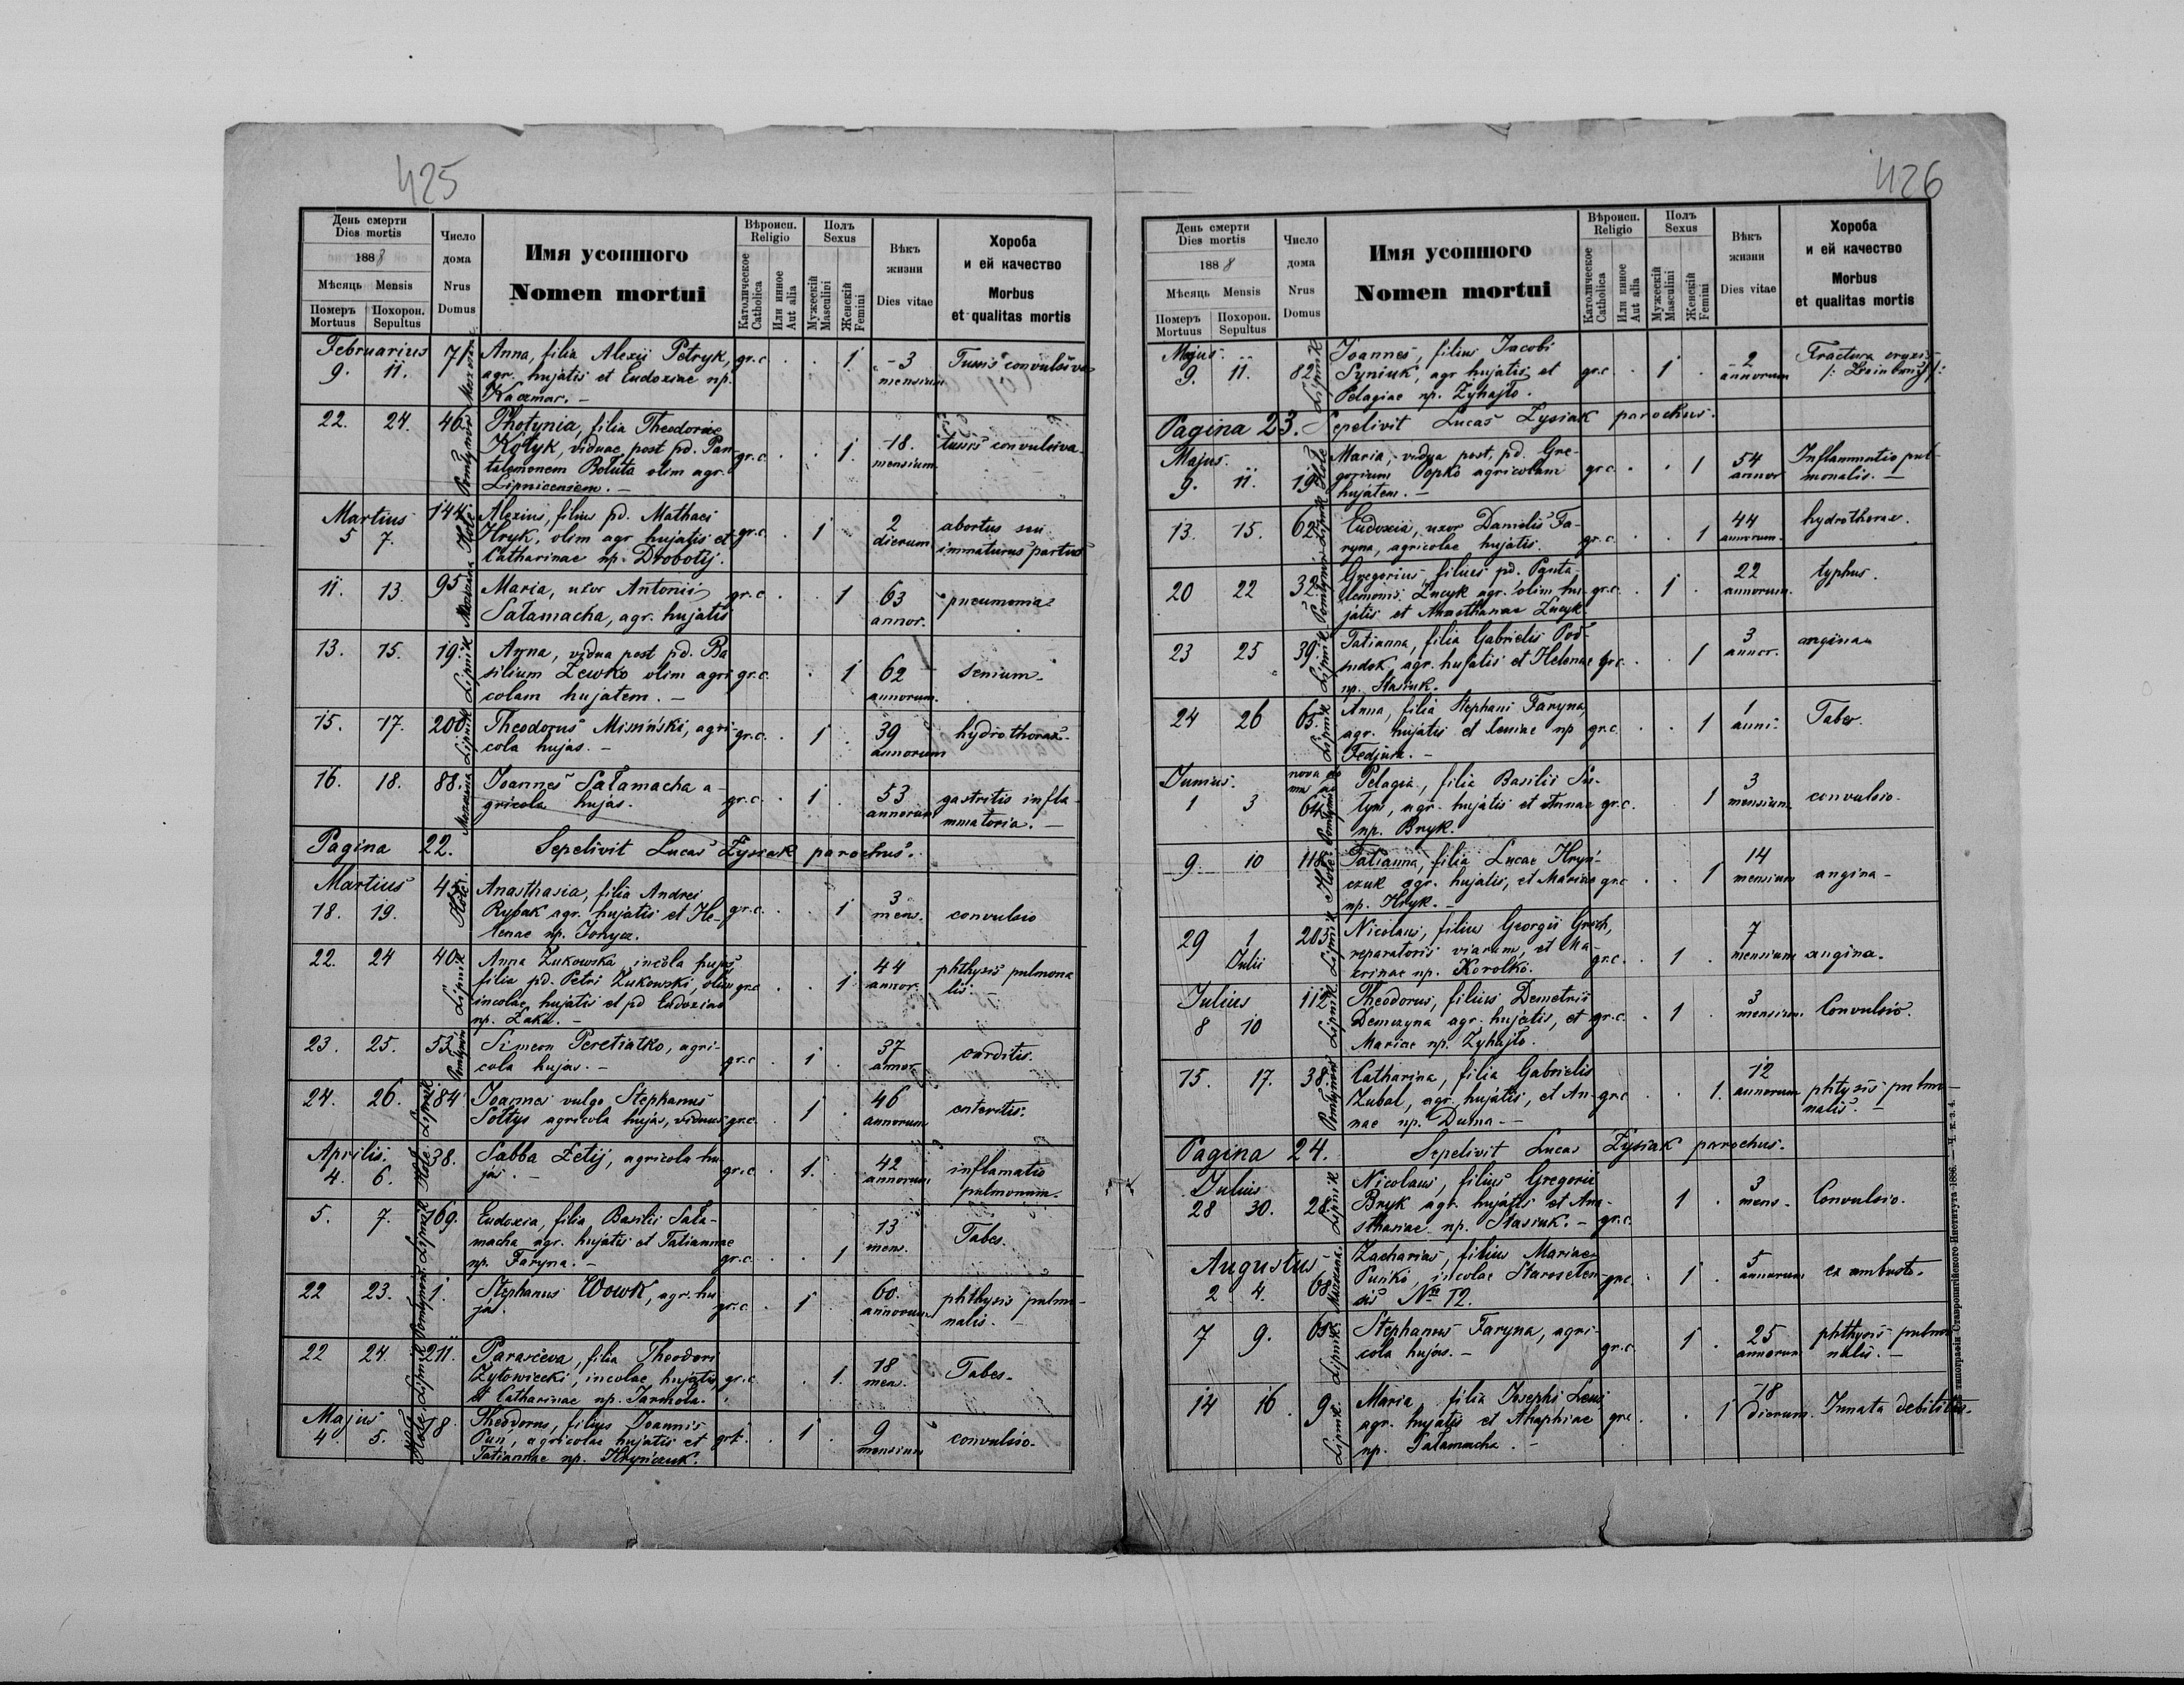 425
День смерти
Dies mortis
1888
Мѣсяць Mensis
Померъ Mortuus
Похорон. Sepultus
Число дома
Nrus Domus
Имя усопшого
Nomen mortui
Вѣроисп. Religio
Католическое Catholica
Или инное Aut alia
Полъ Sexus
Мужескій Masculini
Женскій Femini
Вѣкъ жизни
Dies vitae
Хороба и ей качество
Morbus et qualitas mortis
Februarius
9. 11. 71. Anna, filia Alexii Petryk, gr.c. 1 3 mensium Tussis convulsiva
agr. hujatis et Eudoxiae np.
Kaczmar. –
22. 24. 46 Photynia, filia Theodorae
Kotyk, viduae post pd. Pan- gr.c. 1. 18. mensium tussis convulsiva
talemonem Boluta olim agr.
Lipnicensem. –
Martius
5 7. 144 Alexius, filius pd. Mathaei
Hryk, olim agr hujatis et gr.c. 1 2 dierum abortus seu immaturus partus
Catharinae np. Drobotij.
11. 13. 95 Maria, uxor Antonii gr.c 1 63 annor. pneumonia
Sałamacha, agr. hujatis
13. 15. 19. Anna, vidua post pd. Ba
silium Zewko olim agri gr.c. 1 62 annorum. senium.
colam hujatem. –
15. 17. 200 Theodorus Misiński, agri- gr.c. 1 39 annorum hydrothorax.
cola hujas. –
16. 18. 88. Joannes Sałamacha a-
gricola hujas. gr.c. 1 53 annorum gastritis infla-
mmatoria. –
Pagina 22. Sepelivit Lucas Zysiak parochus.
Martius
18. 19. 45 Anasthasia, filia Andrei
Rybak agr. hujatis et He- gr.c. 1 3 mens. convulsio
lenae np. Jonycz.
22. 24 40 Anna Żukowska incola hujas
filia pd. Petri Żukowski, olim gr.c 1 44 annor. phthysis pulmona
lis.
incolae hujatis et pd Eudoxiae
np. Łaka. –
23. 25. 52 Simeon Peretiatko, agri-
cola hujas. – gr.c 1 37 annor. carditis.
24. 26. 184 Joannes vulgo Stephanus
Sołtys agricola hujas, viduus gr.c. 1 46 annorum enteritis.
Aprilis.
4. 6. 38. Sabba Łetij, agricola hu
jas. – gr.c 1. 42 annorum inflamatio
pulmonum.
5. 7. 169. Eudoxia, filia Basilii Sała-
macha agr. hujatis et Tatiannae
np. Faryna. – gr.c. 1 13 mens. Tabes.
22 23. 1. Stephanus Wowk, agr. hu
jas. gr.c 1 60. annorum phthysis pulmo-
nalis. –
22 24. 211. Parasceva, filia Theodori
Zytowiecki, incolae hujatis, gr.c 1. 18 men. Tabes.
et Catharinae np. Jarmola.
Majus
4. 5. 78. Theodorus, filius Joannis
Puń, agricolae hujatis et gr.k. 1 9 mensium convulsio.
Tatiannae np. Hryńczuk.
426
День смерти
Dies mortis
1888
Мѣсяць Mensis
Померъ Mortuus
Похорон. Sepultus
Число дома
Nrus Domus
Имя усопшого
Nomen mortui
Вѣроисп. Religio
Католическое Catholica
Или инное Aut alia
Полъ Sexus
Мужескій Masculini
Женскій Femini
Вѣкъ жизни
Dies vitae
Хороба и ей качество
Morbus et qualitas mortis
Majus.
9. 11. 82 Joannes, filius Jacobi
Syniuk, agr hujatis et gr.c 1 2 annorum Fractura
Pelagiae np. Zyhajło.
Pagina 23. Sepelivit Lucas Zysiak parochus.
Majus.
9. 11. 19 Maria, vidua post. pd. Gre-
gorium Popko agricolam gr.c 1 54 annor Inflammatio pul-
monalis. –
hujatem. –
13. 15. 62 Eudoxia, uxor Danielis Fa-
ryna, agricolae hujatis. gr.c. 1 44 annorum. hydrothorax.
20 22 32 Gregorius, filius pd. Panta
lemonis Zucyk agr. olim hu- gr.c. 1 22 annorum. typhus.
jatis et Anasthasiae Zucyk
23 25 39. Tatianna, filia Gabrielis Pod-
sudok agr. hujatis et Helenae gr.c. 1 3 annor. angina
np. Stasiuk.
24 26 65. Anna, filia Stephani Faryna,
agr. hujatis et Xeniae np gr.c. 1 1 anni. Tabes.
Fedjuk. –
Junius.
1 3 64 Pelagia, filia Basilii
agr. hujatis et Annae gr.c. 1 3 mensium convulsio.
np. Bryk.
9. 10 118 Tatianna, filia Lucae Hryń-
czuk agr. hujatis, et Mariae gr.c 1 14 mensium angina –
np. Hryk. –
29 1 Julii 205 Nicolaus, filius Georgii Groch,
reparatoris viarum, et Ma- gr.c. 1 7 mensium angina.
np. Korolko.
Julius
8 10 112 Theodorus, filius Demetrii
Demczyna agr. hujatis, et gr.c. 1 3 mensium. Convulsio.
Mariae np. Zyhajło.
15. 17. 38. Catharina, filia Gabrielis
Zubal, agr. hujatis, et An- gr.c 1. 12 annorum phtysis pulmo-
nalis. –
nae np. Duma –
Pagina 24. Sepelivit Lucas Zysiak parochus.
Julius
28 30. 28. Nicolaus, filius Gregorii
Bryk agr. hujatis et Ana-
sthasiae np. Stasiuk. – gr.c. 1 3 mens. Convulsio.
Augustus
2 4. 68. Zacharias, filius Mariae
Puńko, incolae Staroselen- gr.c 1 5 annorum ex ambusto.
sis Nro 12.
7 9. 65. Stephanus Faryna, agri-
cola hujas. – gr.c 1 25 annorum phthysis pulmo
nalis. –
14 16 9. Maria, filia Josephi Leus
agr. hujatis et Ahaphiae gr.c 1 18 dierum. Innata debilitas.
np. Sałamacha. –
типографіи Ставропигійского Института 1886. — Ч. к. з. 4.